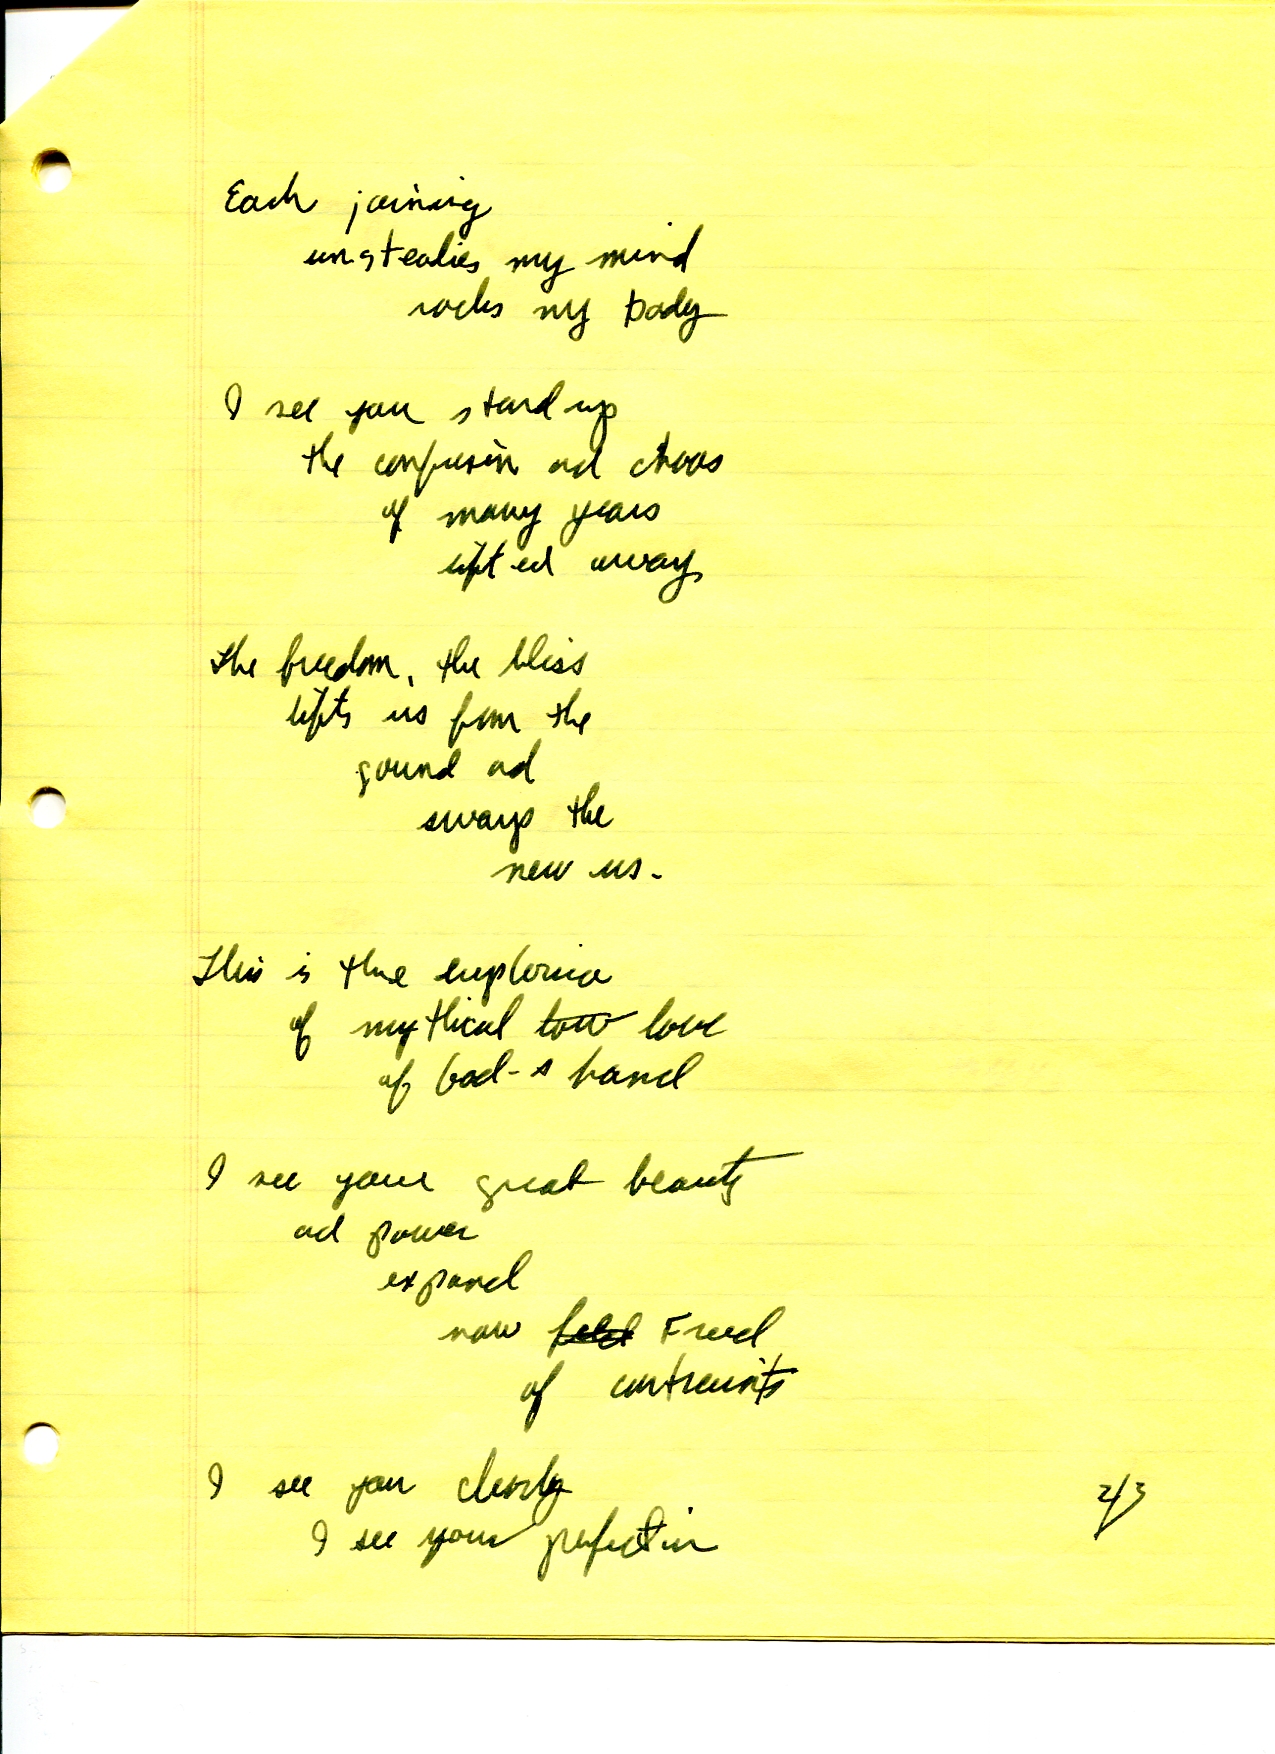 Each joining
unsteadies my mind
rocks my body
I see you stand up
the confusion and chaos
of many years
lifted away
the freedom, the bliss
lifts us from the
ground and
sways the
new us.
This is the euphoria
of mythical love
of God's hand
I see your great beauty
and power
expand
now Freed
of contraints
I see you clearly
I see your perfection
2/3